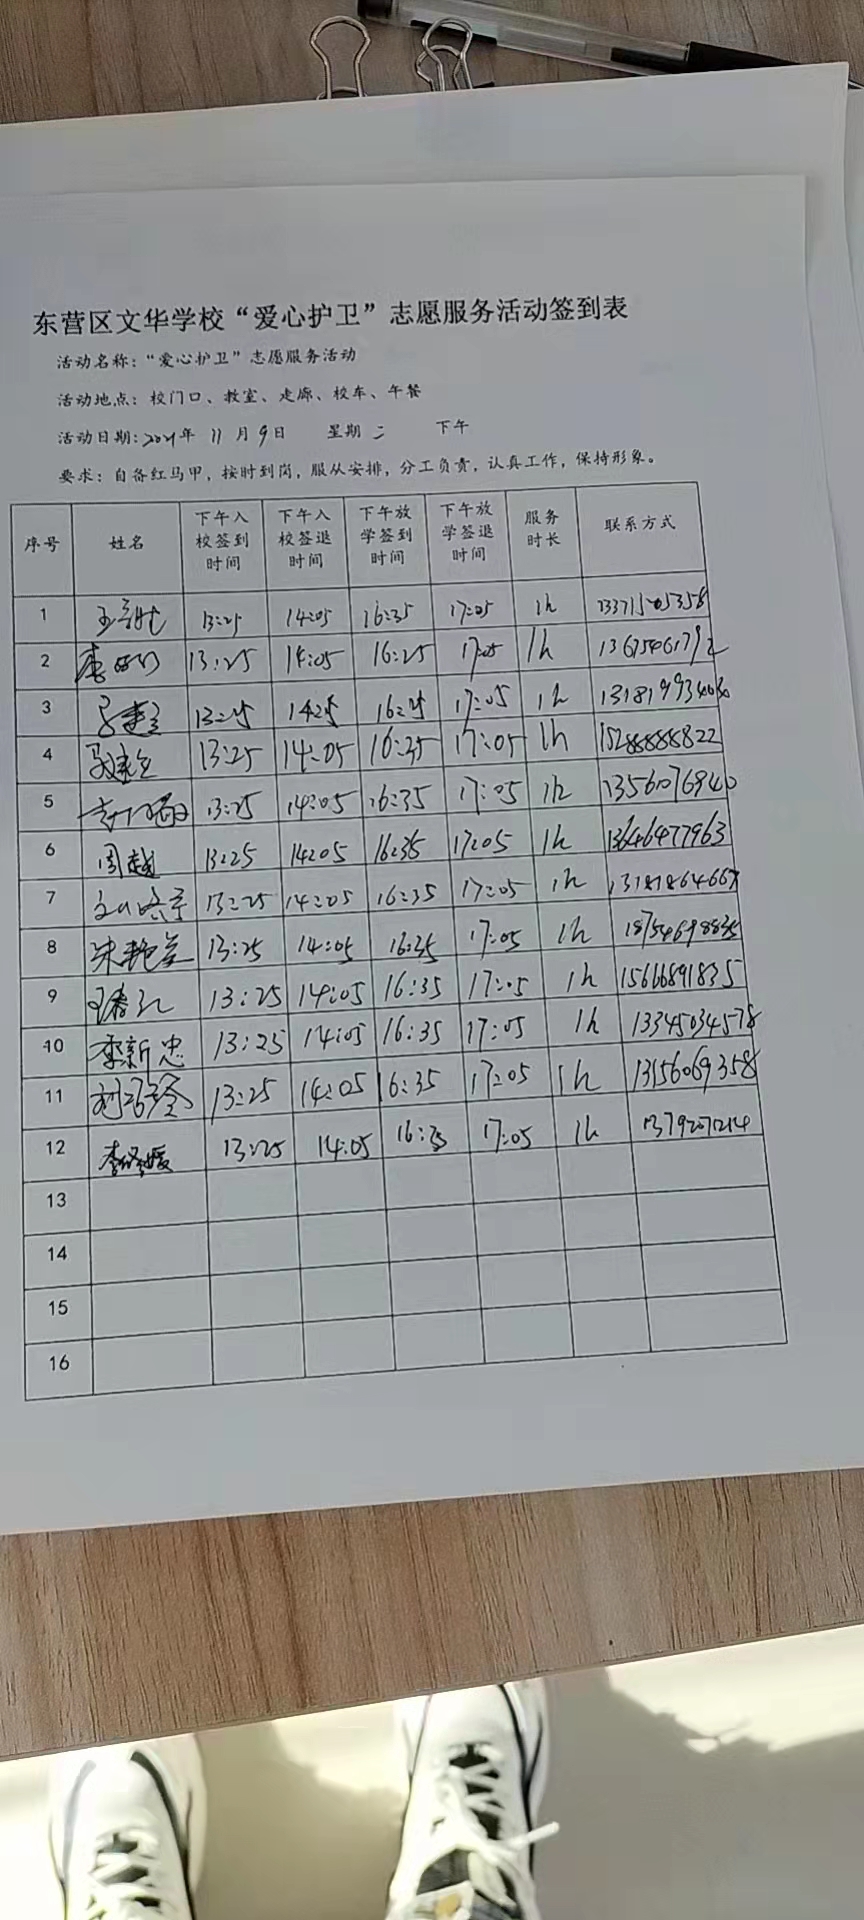 东营区文华学校“爱心护卫”志愿服务活动签到表
活动名称：“爱心护卫”志愿服务活动
活动地点：校门口、教室、走廊、校车、午餐
活动日期：2021年 11月9日 星期二 下午
要求：自备红马甲，按时到岗，服从安排，分工负责，认真工作，保持形象。
序号 姓名 下午入校签到时间 下午入校签退时间 下午放学签到时间 下午放学签退时间 服务时长 联系方式
1 13:25 14:05 16:35 17:05 1h 13371505358
2 13:25 14:05 16:25 17:05 1h
3 13:25 17:05 1h
4 13:25 14:05 16:35 17:05 1h 15288888822
5 13:25 14:05 16:35 17:05 1h 13561076940
6 周越 13:25 14:05 16:35 17:05 1h 13646477963
7 13:25 14:05 16:35 17:05 1h
8 朱艳 13:25 14:05 16:35 17:05 1h 18754698835
9 13:25 14:05 16:35 17:05 1h 15666891835
10 李新忠 13:25 14:05 16:35 17:05 1h 13345034578
11 13:25 14:05 16:35 17:05 1h 13156069358
12 13:25 14:05 16:35 17:05 1h
13
14
15
16